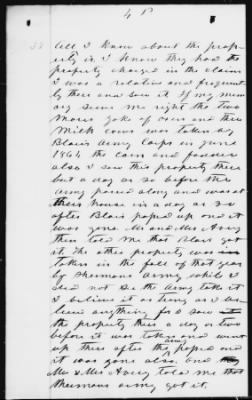 4
All I know about the prop-
erty is I know they had the
property charged in the claim
I was a relative and frequent
ly there and saw it If my mem
ory serves me right the two
Mares yoke of oxen and three
Milk cows was taken by
Blairs Army Corps in June
1864 the corn and fodder
also I saw this property there
but a day or so before the
army passed along and was at
their house in a day or so
after Blair passed up and it
was gone Mr and Mrs Avery
then told me that Blair got
it the other property was
taken in the fall of that year
by Shermans army while I
did not see the Army take it
I believe it as truly as I be-
lieve anything for I saw
the property there a day or two
before it was taken and went
up there after the army passed and
it was gone also and
Mr & Mrs Avery told me that
Shermans army got it.